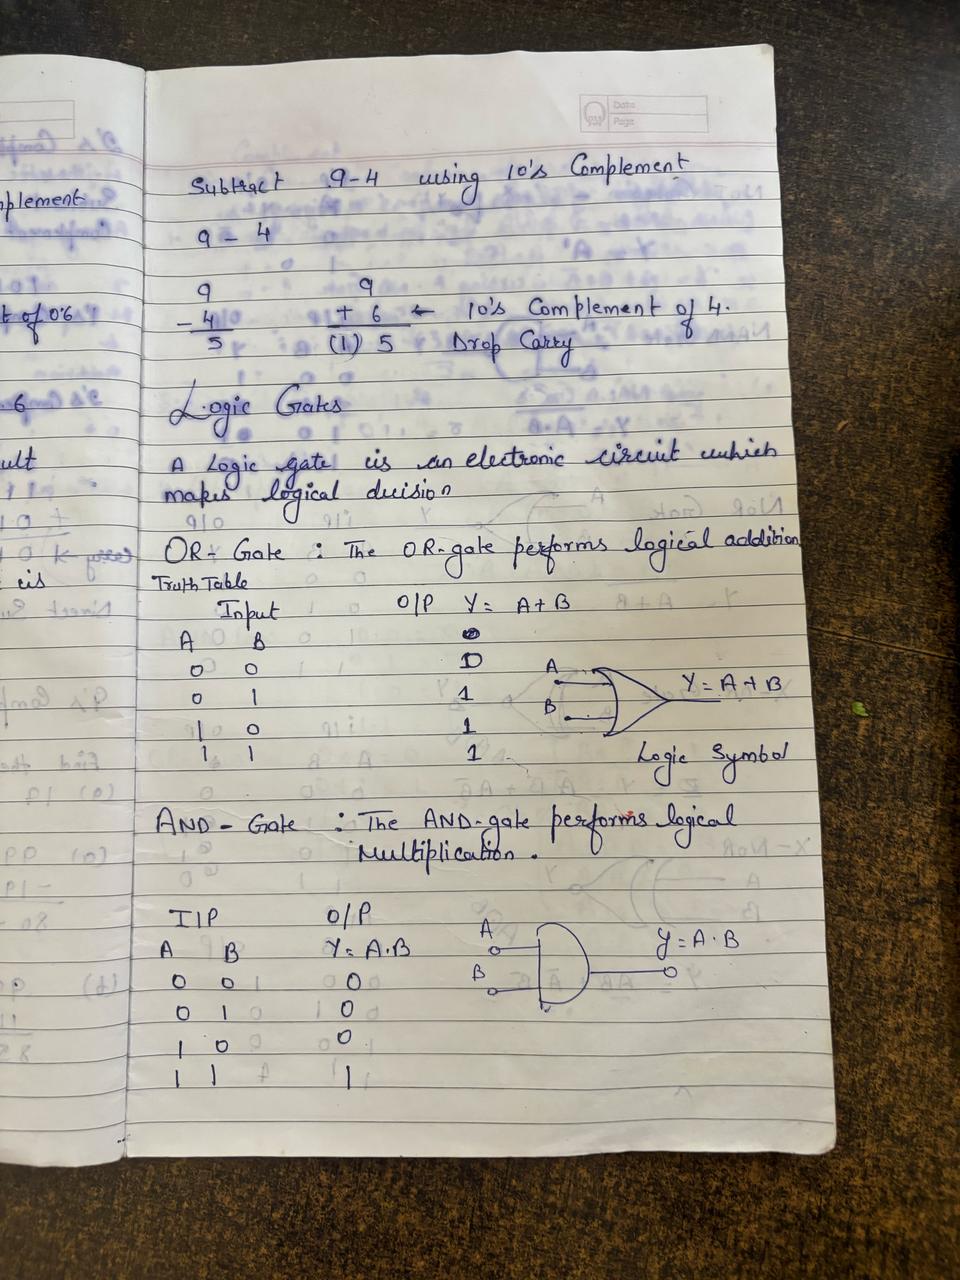 Date
Page
Subtract 9-4 using 10's Complement
9 - 4
9 9
- 4 + 6 ← 10's Complement of 4.
5 (1) 5 Drop Carry
Logic Gates
A Logic gate is an electronic circuit which
makes logical decision
OR- Gate : The OR-gate performs logical addition
Truth Table
Input O/P Y = A+B
A B
0 0 0
0 1 1
1 0 1
1 1 1
A
B
Y = A + B
Logic Symbol
AND - Gate : The AND-gate performs logical
Multiplication.
I/P O/P
A B Y = A.B
0 0 0
0 1 0
1 0 0
1 1 1
A
B
Y = A.B
mplement
t of 06
6
ult
is